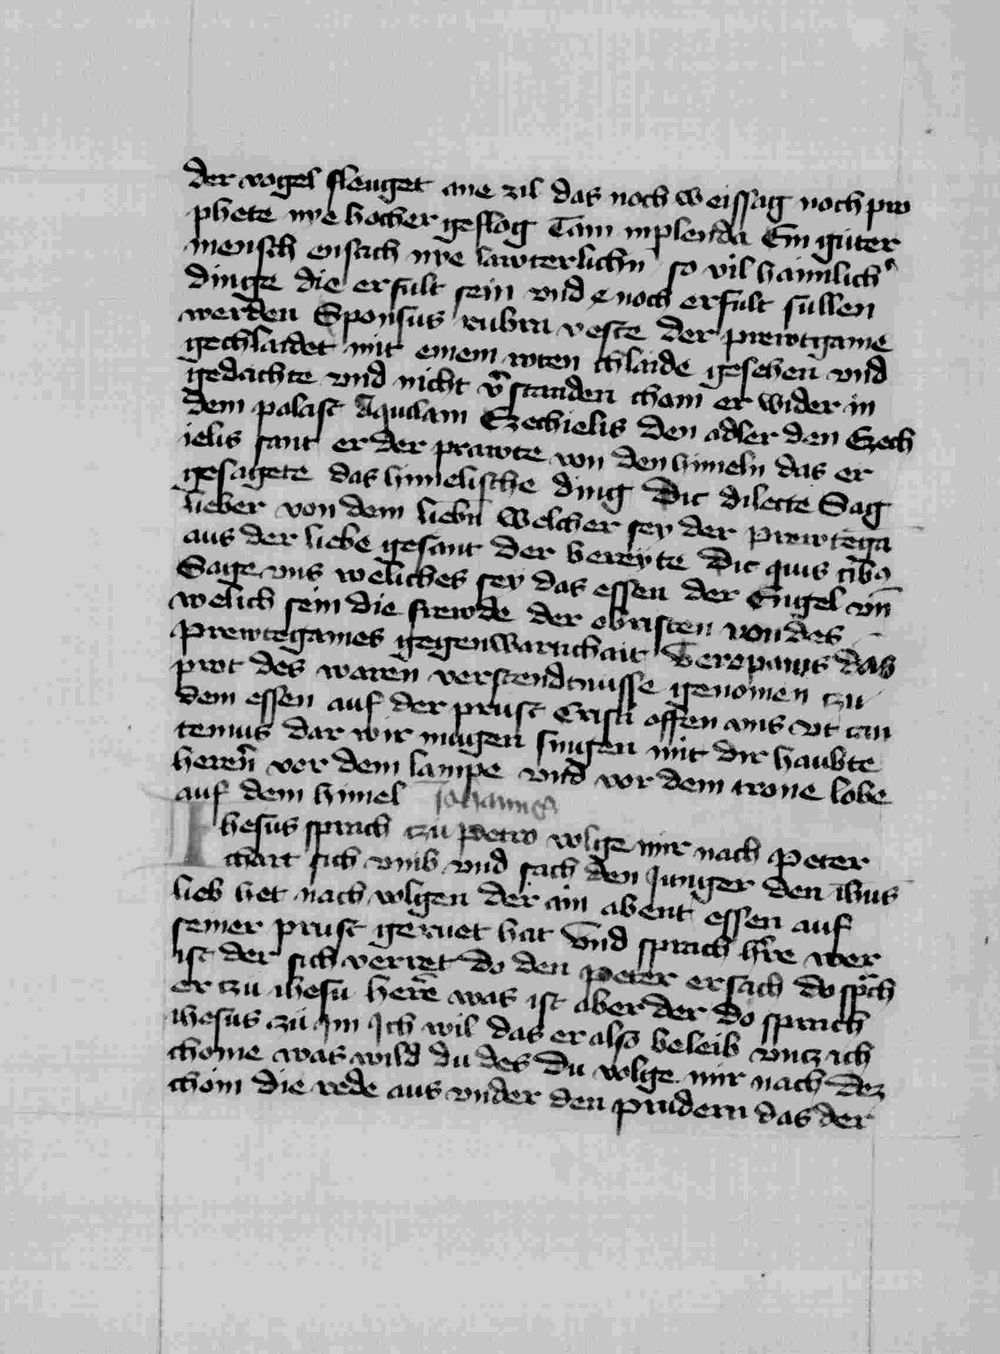 der vogel fleuget ane zil das noch weissag noch pro
phete nye hocher geflog Tam inplenda Ein guter
mensch ensach nye lawterlichn so vil haimlich
dinge die erfult sein vnd noch erfult sullen
werden Sponsus rubra veste der prewtgame
gechlaidet mit einem roten chlaide gesehen vnd
gedachte vnd nicht v̄standen chom er wider in
dem palast Aquilam Ezechielis den adler den Ezech
ielis sant er der prawte von den himeln das er
gesagete das himelische ding Dic dilecte Sag
lieber von dem liebn Welcher sey der prewtega
aus der liebe gesant der bereyte Dic quis cibꝯ
Sage vns weliches sey das essen der Engel vn̄
welich sein die frewde der obristen von des
prewtegames gegenwartichait Veropanis das
prot des waren verstendtnusse genomen zu
dem essen auf der prust Cristi offen vns vt can
temus dar wir mugen singen mit dir haubte
heren̄ vor dem lampe vnd vor dem trone lobe
auf dem himel Johannes
Ihesus sprach zu petro volge mir nach Peter
chart sich vmb vnd sach den Junger den ih̄us
lieb het nach volgen der am abent essen auf
seiner prust geruet hat vnd sprach h̄re wer
ist der dich verret do den Peter ersach do sp̄ch
er zu ihesu herē was ist aber der do sprach
ihesus zu Im Ich wil das er also beleib vncz ich
chome was wild du des Du volge mir nach dez
chom die rede aus vnder den prudern das der